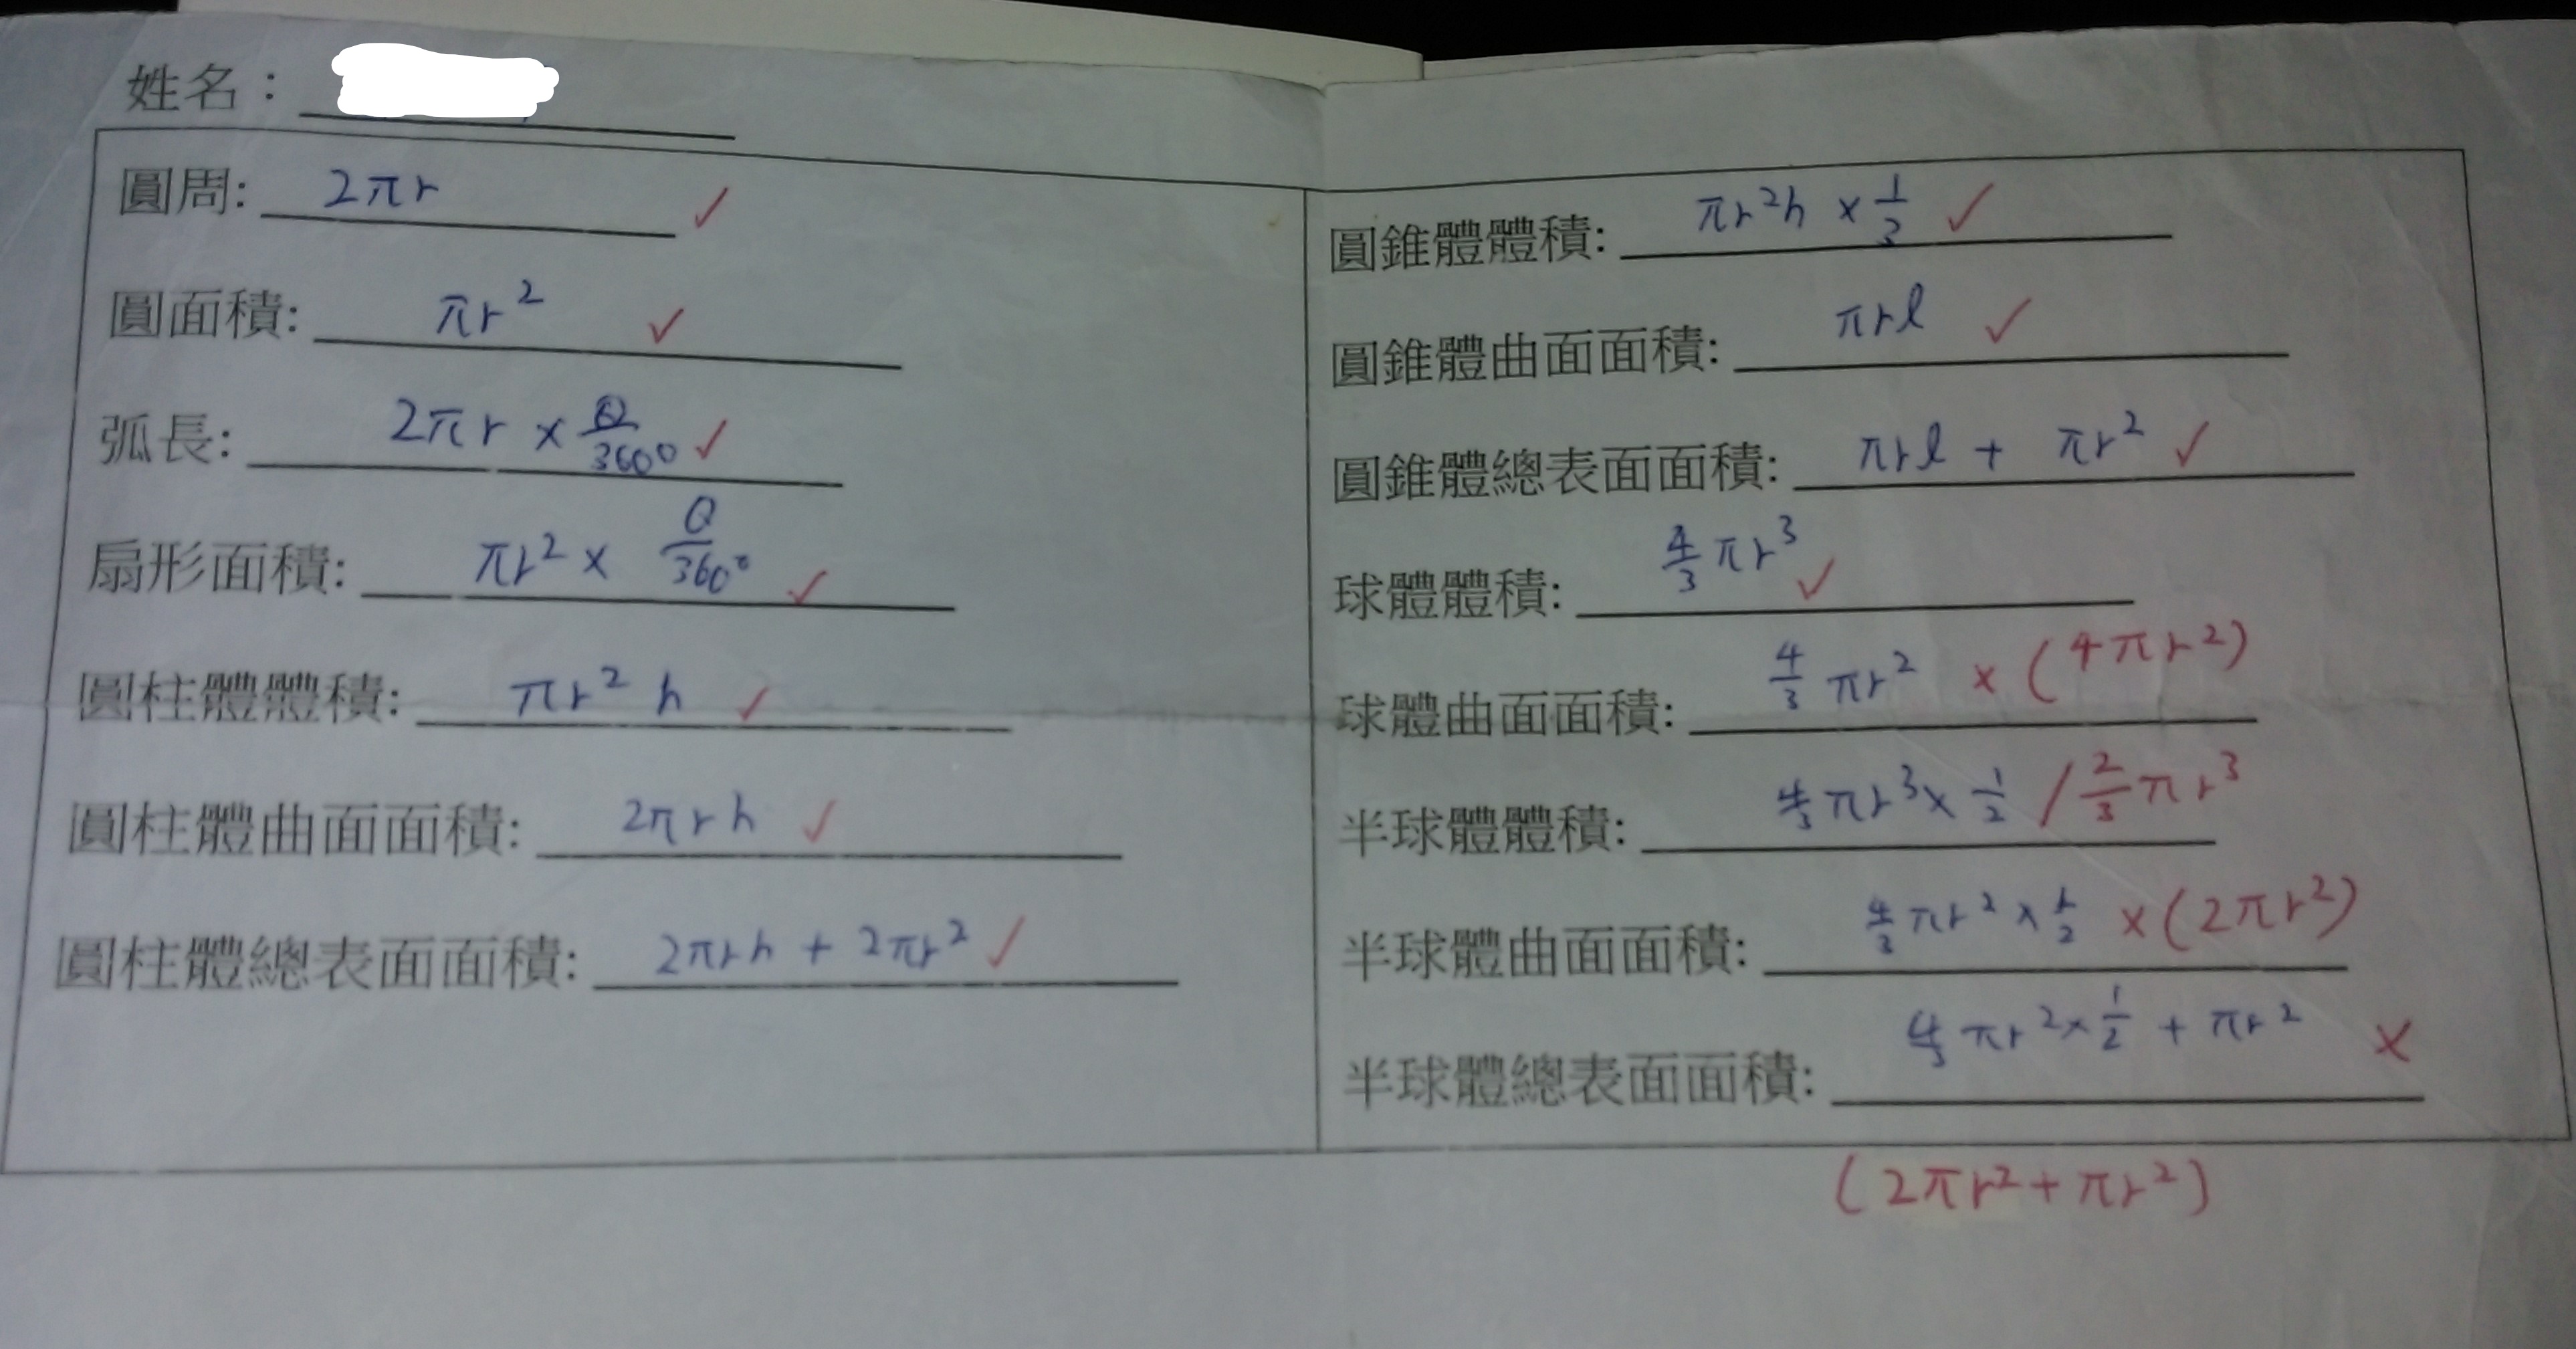 姓名：
圓周: 2πr ✓
圓面積: πr² ✓
弧長: 2πr × θ/360° ✓
扇形面積: πr² × θ/360° ✓
圓柱體體積: πr² h ✓
圓柱體曲面面積: 2πrh ✓
圓柱體總表面面積: 2πrh + 2πr² ✓
圓錐體體積: πr²h × 1/3 ✓
圓錐體曲面面積: πrl ✓
圓錐體總表面面積: πrl + πr² ✓
球體體積: 4/3 πr³ ✓
球體曲面面積: 4/3 πr² × (4πr²)
半球體體積: 4/3 πr³ × 1/2 / 2/3 πr³
半球體曲面面積: 4/3 πr² × 1/2 × (2πr²)
半球體總表面面積: 4/3 πr² × 1/2 + πr² ×
(2πr² + πr²)